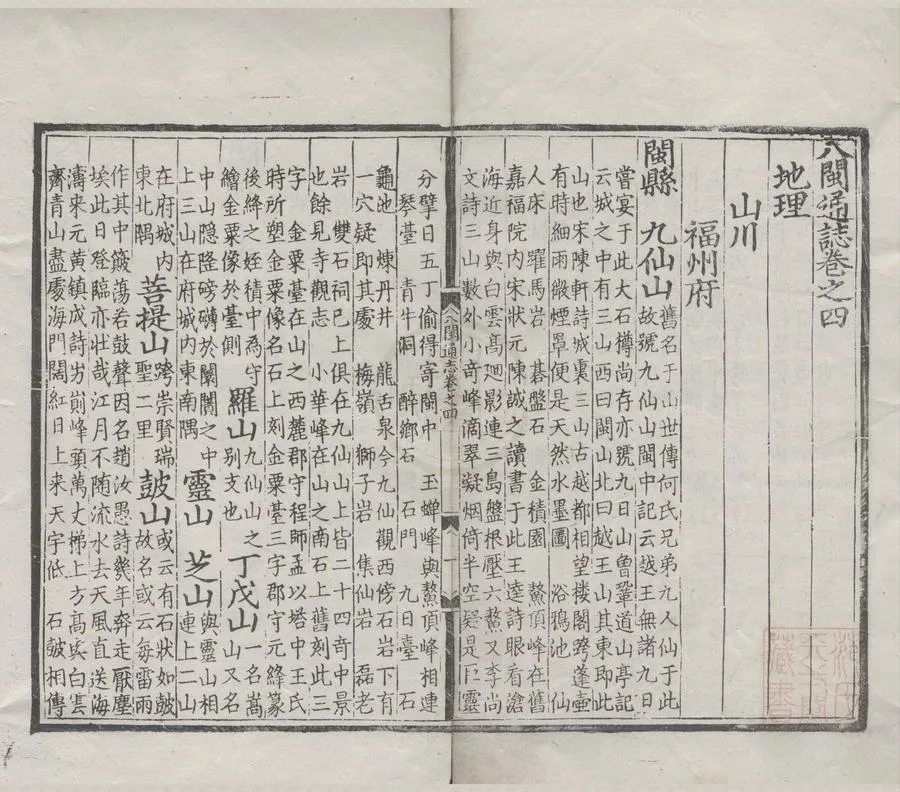 八閩通誌卷之四
地理
山川
福州府
閩縣 九仙山 舊名于山世傳何氏兄弟九人仙于此
故號九仙山閩中記云越王無諸九日
嘗宴于此大石樽尚存亦號九日山曾鞏道山亭記
云城之中有三山西曰閩山北曰越王山其東即此
山也宋陳軒詩城裏三山古越都相望楼閣跨蓬壺
有時細雨微煙罩便是天然水墨圖 浴鴉池 仙
人床 躍馬岩 碁盤石 金積園 鰲頂峰在舊
嘉福院内宋狀元陳誠之讀書于此王逵詩眼看滄
海近身與白雲髙廻影連三島盤根壓六鰲又李尚
文詩三山數外小奇峰滴翠疑烟倚半空疑是巨靈
八閩通志卷之四
一
分擘日五丁偷得寄閩中 玉蟬峰與鰲頂峰相連
琴臺 青牛洞 醉鄉石 石門 九日臺 石
龜池 煉丹井 龍舌泉今九仙觀西傍石岩下有
一穴疑即其處 梅嶺 獅子岩 集仙岩 磊老
岩 雙石祠已上俱在九仙山上皆二十四竒中景
也餘見寺觀志 小華峰在山之南石上舊刻此三
字 金粟臺在山之西麓郡守程師孟以塔中王氏
時所塑金粟像名石上刻金粟臺三字郡守元絳篆
後絳之姪積中為守 羅山九仙山之 丁戊山一名嵩
繪金粟像於臺側 别支也 山又名
中山隠隆磅礡於闤闠之中 靈山 芝山與靈山相
上三山在府城内東南隅 連上二山
在府城内 菩提山跨崇賢瑞 鼓山或云有石狀如鼓
東北隅 聖二里 故名或云每雷雨
作其中簸荡若鼓聲因名趙汝愚詩幾年奔走厭塵
埃此日登臨亦壯哉江月不随流水去天風直送海
濤来元黄鎮成詩岃崱峰頭萬丈梯上方髙與白雲
齊青山盡處海門闊紅日上来天宇低 石鼓相傳